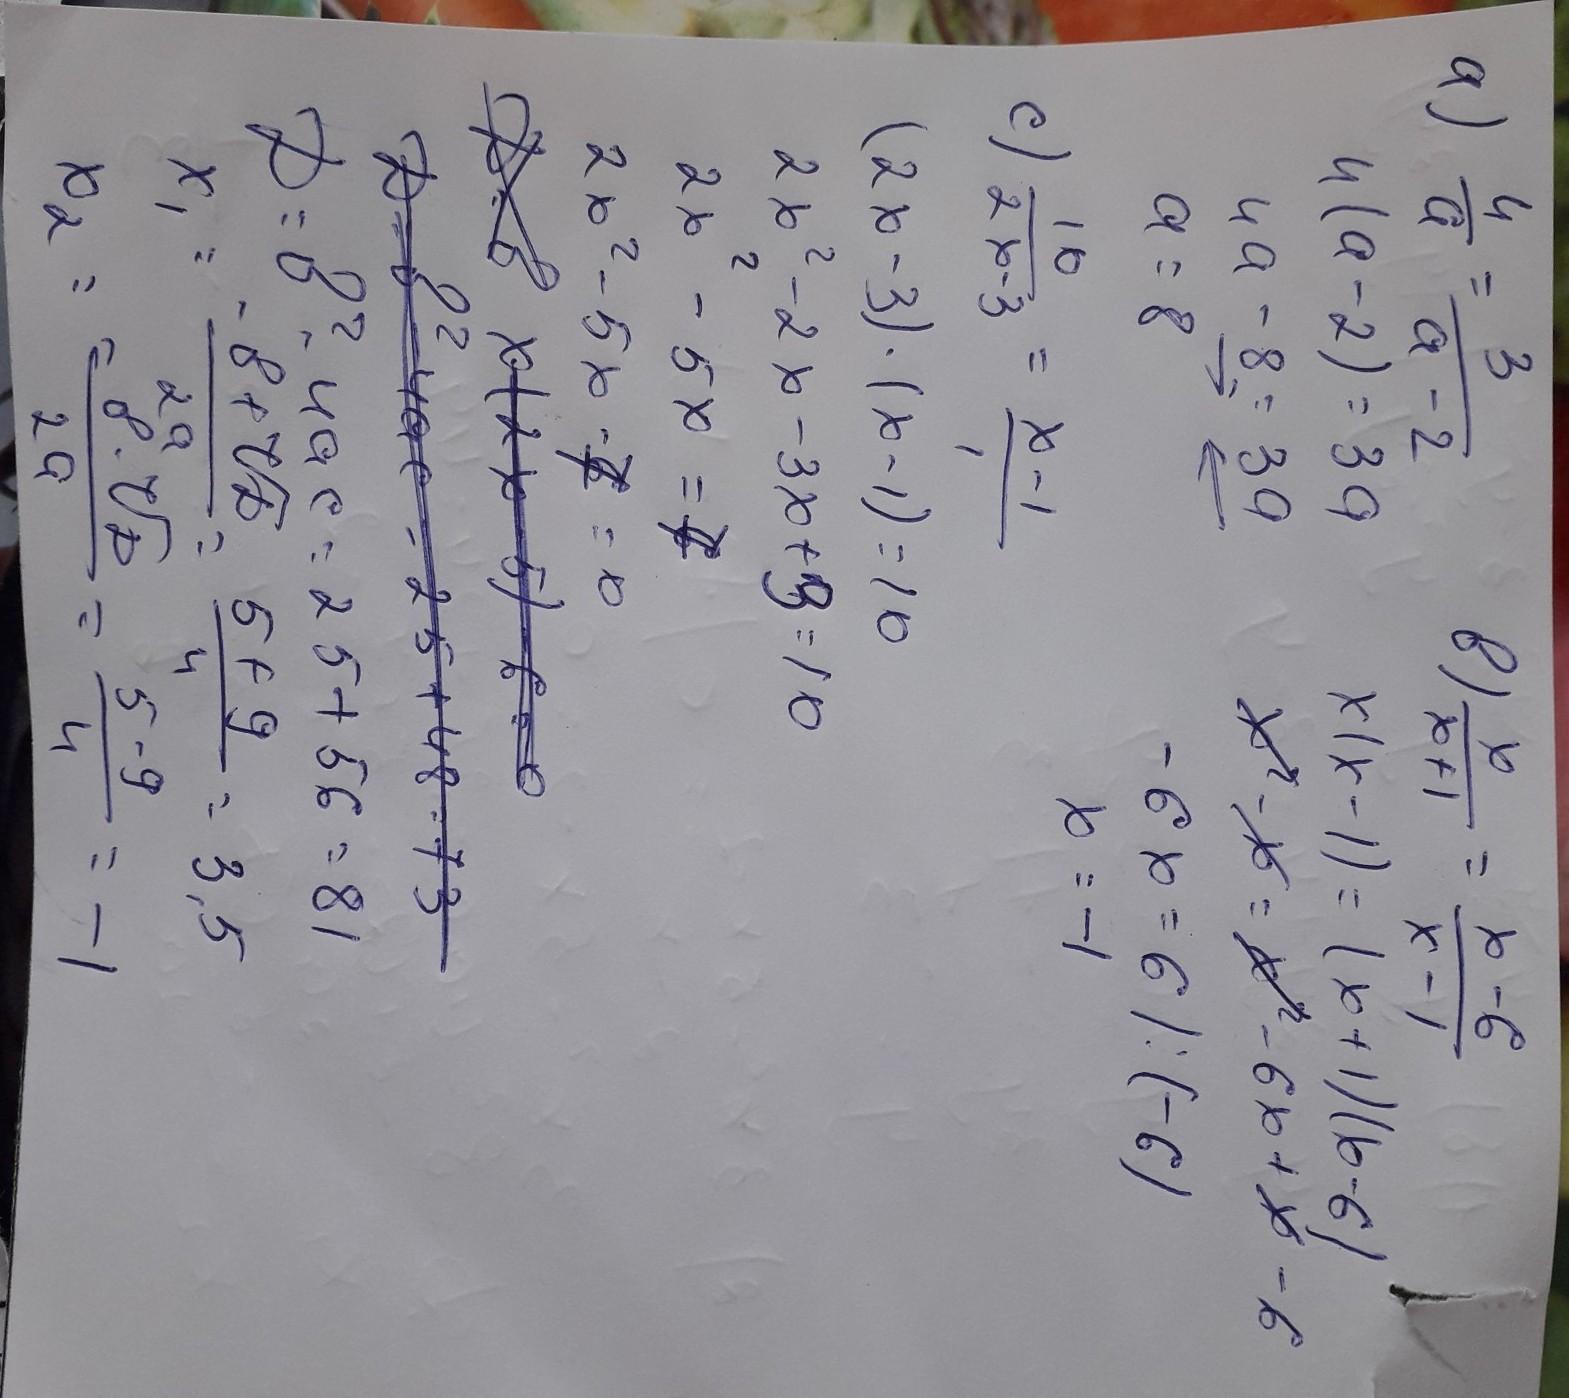 a) 4/a = 3/(a-2)
4(a-2) = 3a
4a - 8 = 3a
a = 8
в) x/(x+1) = (x-6)/(x-1)
x(x-1) = (x+1)(x-6)
x² - x = x² - 6x + x - 6
-6x = 6 /:(-6)
x = -1
c) 10/(2x-3) = (x-1)/1
(2x-3)·(x-1) = 10
2x² - 2x - 3x + 3 = 10
2x² - 5x = 7
2x² - 5x - 7 = 0
x(2x-5) - 6 = 0
D = в² - 4ac = 25 + 48 = 73
D = в² - 4ac = 25 + 56 = 81
x₁ = (-в+√D)/2a = (5+9)/4 = 3,5
x₂ = (-в-√D)/2a = (5-9)/4 = -1